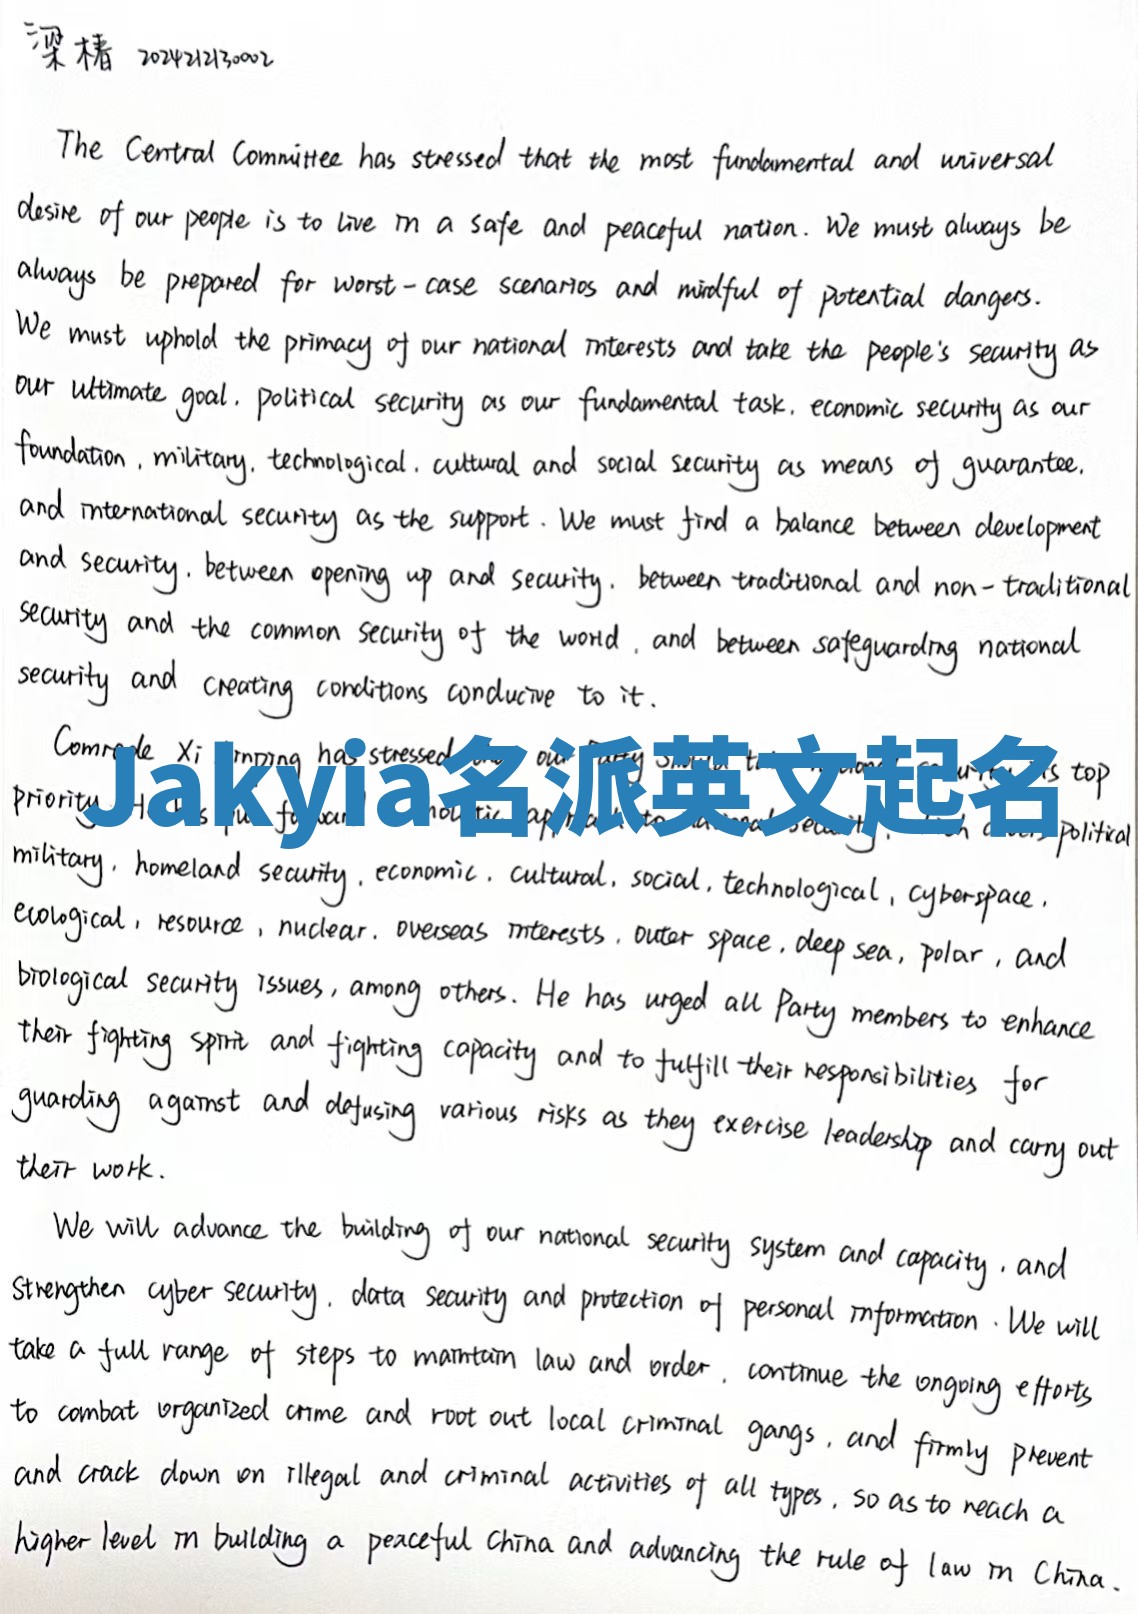 梁椿 2024212130002
The Central Committee has stressed that the most fundamental and universal
desire of our people is to live in a safe and peaceful nation. We must always be
always be prepared for worst-case scenarios and mindful of potential dangers.
We must uphold the primacy of our national interests and take the people's security as
our ultimate goal, political security as our fundamental task, economic security as our
foundation, military, technological, cultural and social security as means of guarantee,
and international security as the support. We must find a balance between development
and security, between opening up and security, between traditional and non-traditional
security and the common security of the world, and between safeguarding national
security and creating conditions conducive to it.
Comrade Xi Jinping has stressed our Party should top
Jakyia名派英文起名
priority. He political
military, homeland security, economic, cultural, social, technological, cyberspace,
ecological, resource, nuclear, overseas interests, outer space, deep sea, polar, and
biological security issues, among others. He has urged all Party members to enhance
their fighting spirit and fighting capacity and to fulfill their responsibilities for
guarding against and defusing various risks as they exercise leadership and carry out
their work.
We will advance the building of our national security system and capacity, and
strengthen cyber security, data security and protection of personal information. We will
take a full range of steps to maintain law and order, continue the ongoing efforts
to combat organized crime and root out local criminal gangs, and firmly prevent
and crack down on illegal and criminal activities of all types, so as to reach a
higher level in building a peaceful China and advancing the rule of law in China.